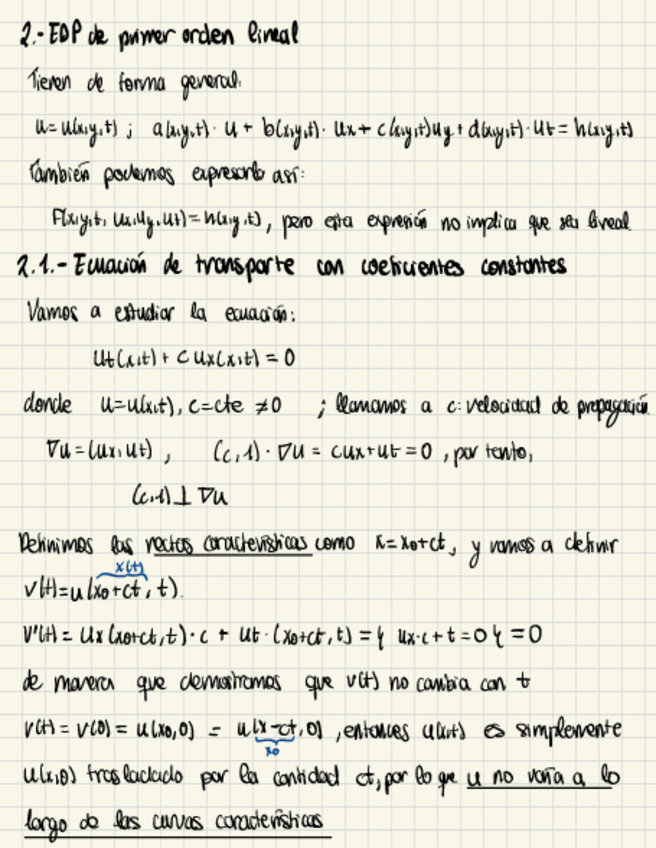 2.- EDP de primer orden lineal
Tienen de forma general:
u=u(x,y,t) ; a(x,y,t)· u + b(x,y,t)· ux + c(x,y,t)uy + d(x,y,t)· ut = h(x,y,t)
También podemos expresarlo así:
F(x,y,t, ux,uy,ut)=h(x,y,t), pero esta expresión no implica que sea lineal
2.1.- Ecuación de transporte con coeficientes constantes
Vamos a estudiar la ecuación:
ut(x,t) + c ux(x,t) = 0
donde u=u(x,t), c=cte ≠0 ; llamamos a c: velocidad de propagación
∇u=(ux,ut) , (c,1)·∇u = cux+ut=0 , por tanto,
(c,1)⊥∇u
Definimos las rectas características como x=x0+ct, y vamos a definir
x(t)
v(t)=u(x0+ct, t).
v'(t) = ux(x0+ct,t)·c + ut·(x0+ct,t) = { ux·c+t=0 { = 0
de manera que demostramos que v(t) no cambia con t
v(t) = v(0) = u(x0,0) = u(x-ct,0) , entonces u(x,t) es simplemente
x0
u(x,0) trasladado por la cantidad ct, por lo que u no varía a lo
largo de las curvas características